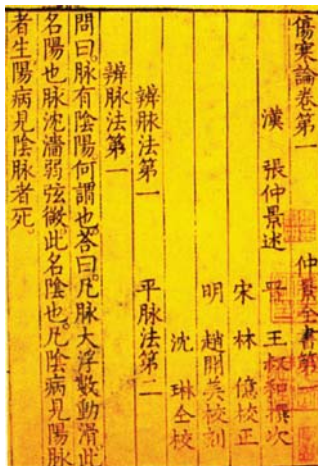 傷寒論卷第一 仲景全書第一
漢 張仲景述 晉 王叔和撰次
宋 林 億校正
明 趙開美校刻
沈 琳仝校
辨脉法第一 平脉法第二
辨脉法第一
問曰。脉有陰陽何謂也。答曰。凡脉大浮數動滑此
名陽也。脉沈濇弱弦微。此名陰也。凡陰病見陽脉
者生。陽病見陰脉者死。